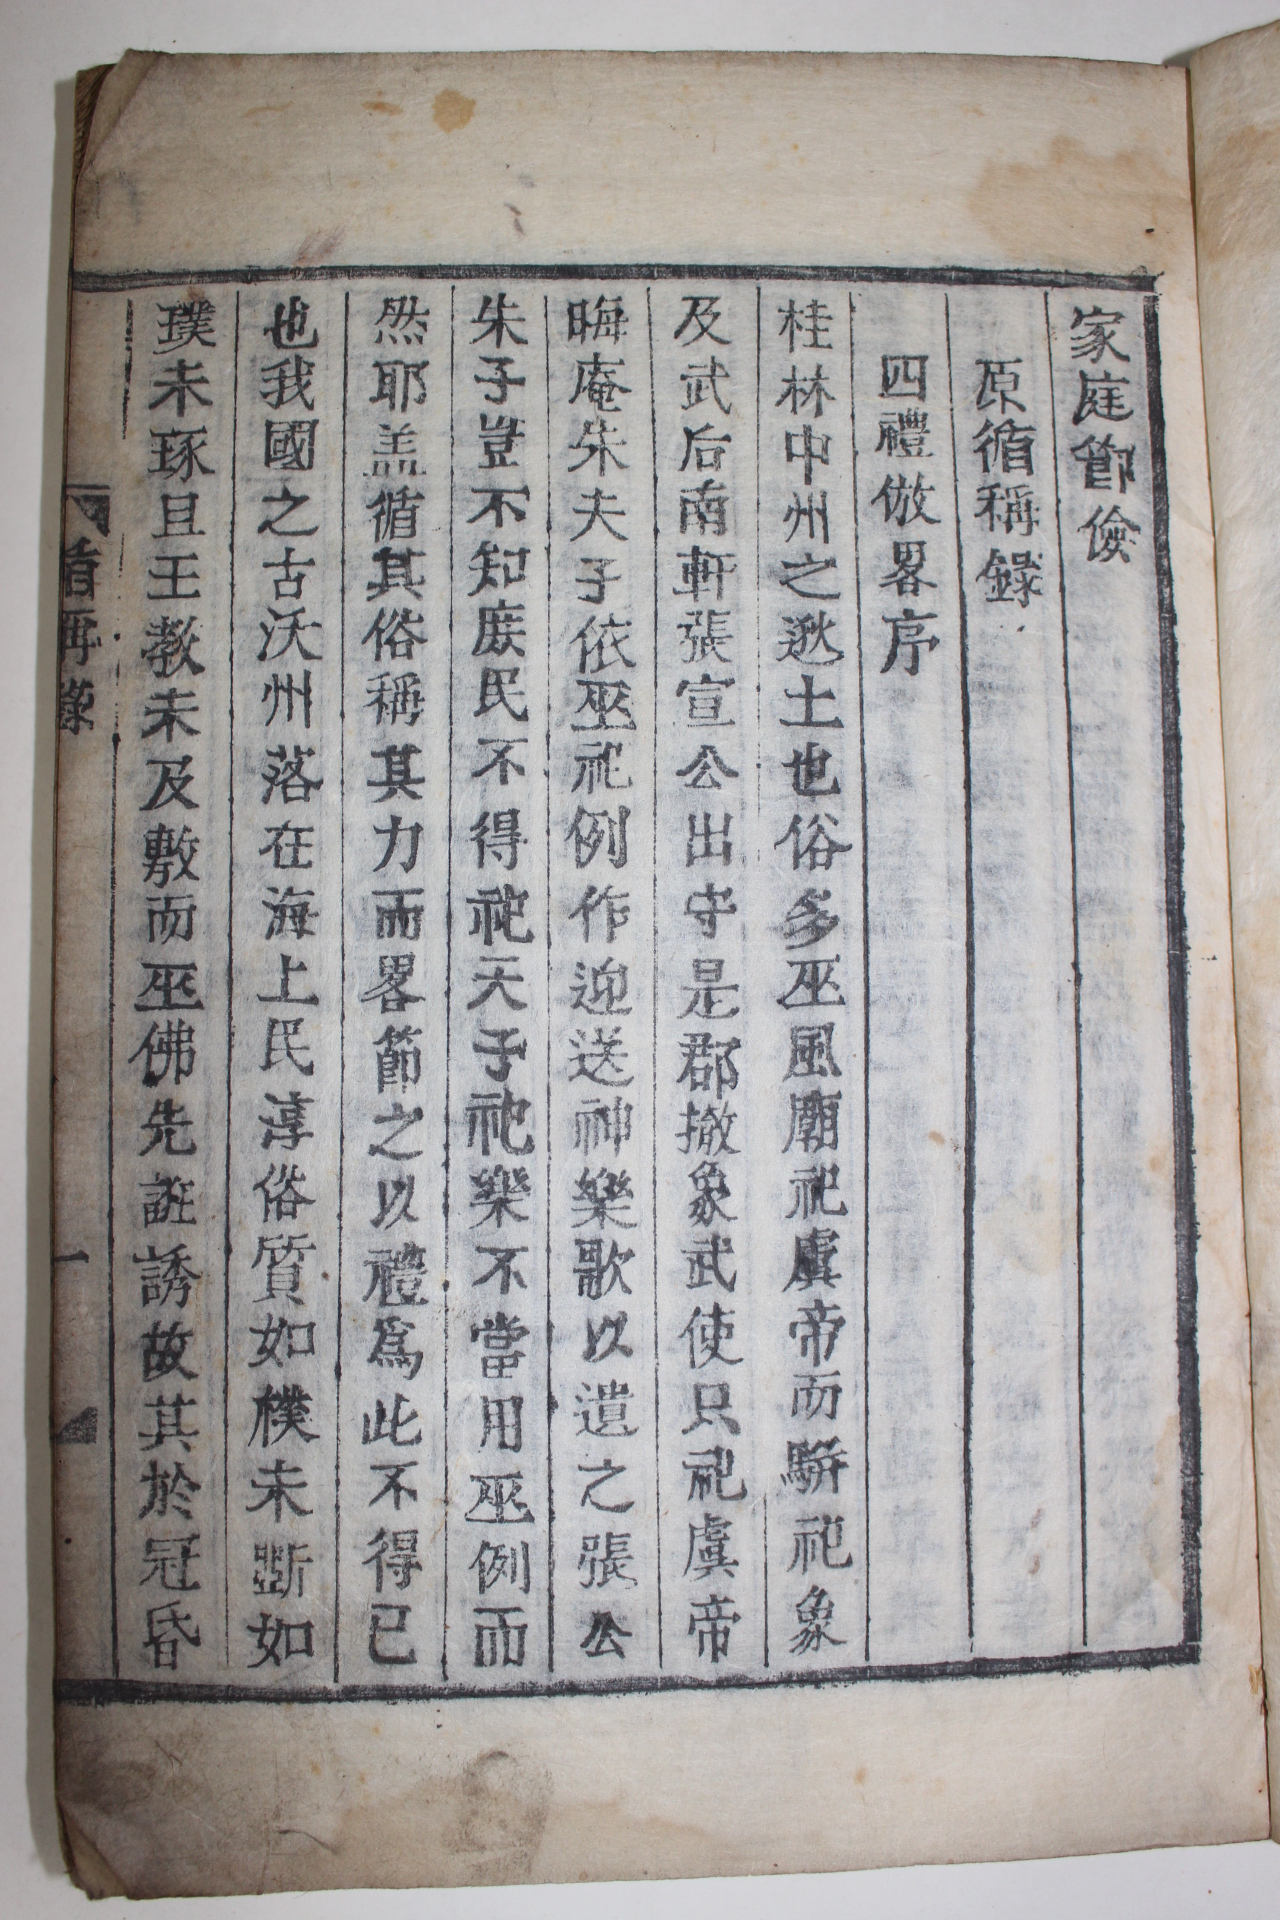 家庭節儉
原循稱錄
四禮倣畧序
桂林中州之逖土也俗多巫風廟祀虞帝而騈祀象
及武后南軒張宣公出守是郡撤象武使只祀虞帝
晦庵朱夫子依巫祀例作迎送神樂歌以遺之張公
朱子豈不知庶民不得祀天子祀樂不當用巫例而
然耶盖循其俗稱其力而畧節之以禮爲此不得已
也我國之古沃州落在海上民淳俗質如樸未斲如
璞未琢且王教未及敷而巫佛先誑誘故其於冠昏
循稱錄
一